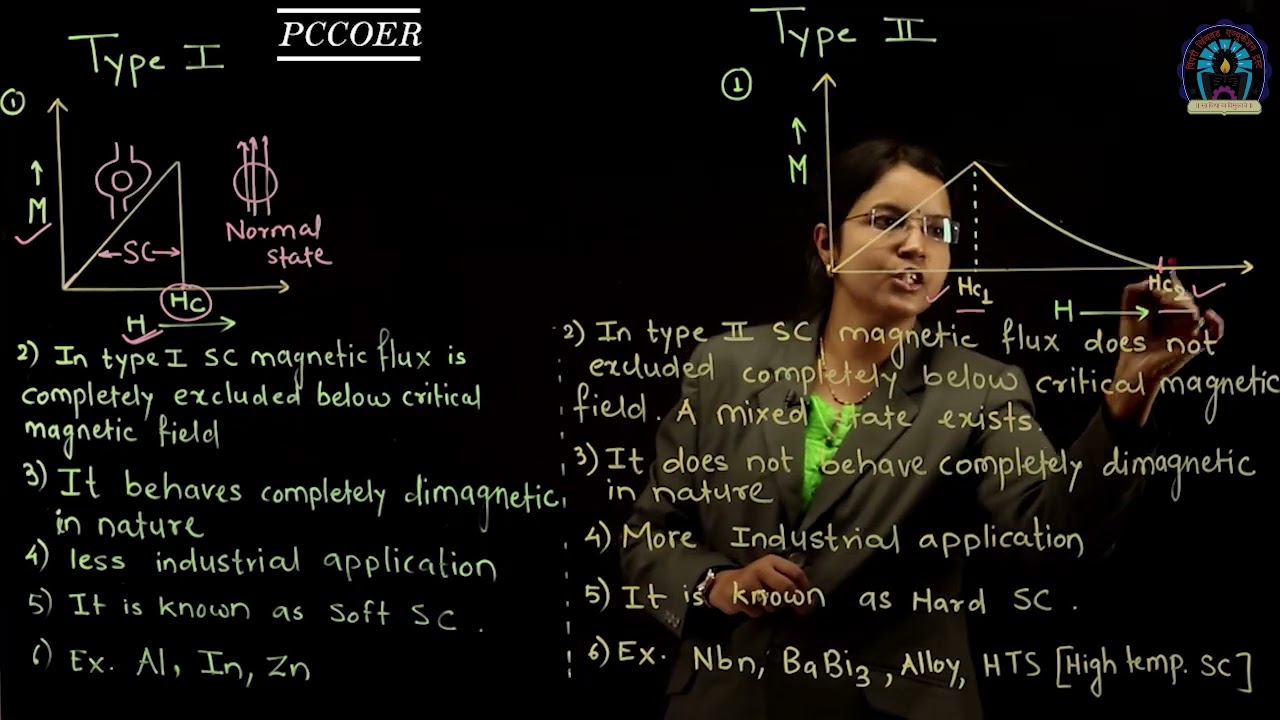 PCCOER
Type I
①
↑
M
SC
Normal
state
Hc
H →
2) In type I SC magnetic flux is
completely excluded below critical
magnetic field
3) It behaves completely dimagnetic
in nature
4) less industrial application
5) It is known as soft SC.
6) Ex. Al, In, Zn
Type II
①
↑
M
Hc1
Hc2
H →
2) In type II SC magnetic flux does not
excluded completely below critical magnetic
field. A mixed state exists.
3) It does not behave completely dimagnetic
in nature
4) More Industrial application
5) It is known as Hard SC.
6) Ex. Nbn, BaBi3, Alloy, HTS [High temp. SC]